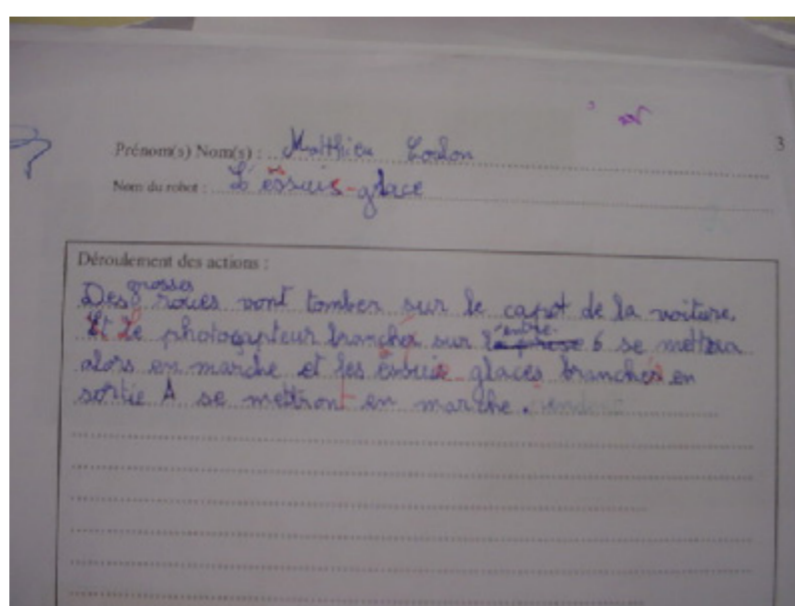 3
Prénom(s) Nom(s) : Matthieu
Nom du robot : L'essuis-glace
Déroulement des actions :
Des grosses roues vont tomber sur le capot de la voiture.
Et Le photocapteur branché sur l'entrée 6 se mettra
alors en marche et les essuie-glaces branchés en
sortie A se mettront en marche.